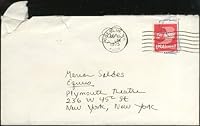 Marian Seldes
Equus
Plymouth Theatre
236 W 45th St
New York, New York